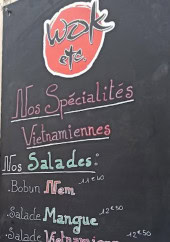 Wok
etc.
Nos Spécialités
Vietnamiennes
Nos Salades:
.Bobun Nem 11€40
.Salade Mangue 12€50
.Salade Vietnamienne 12€50